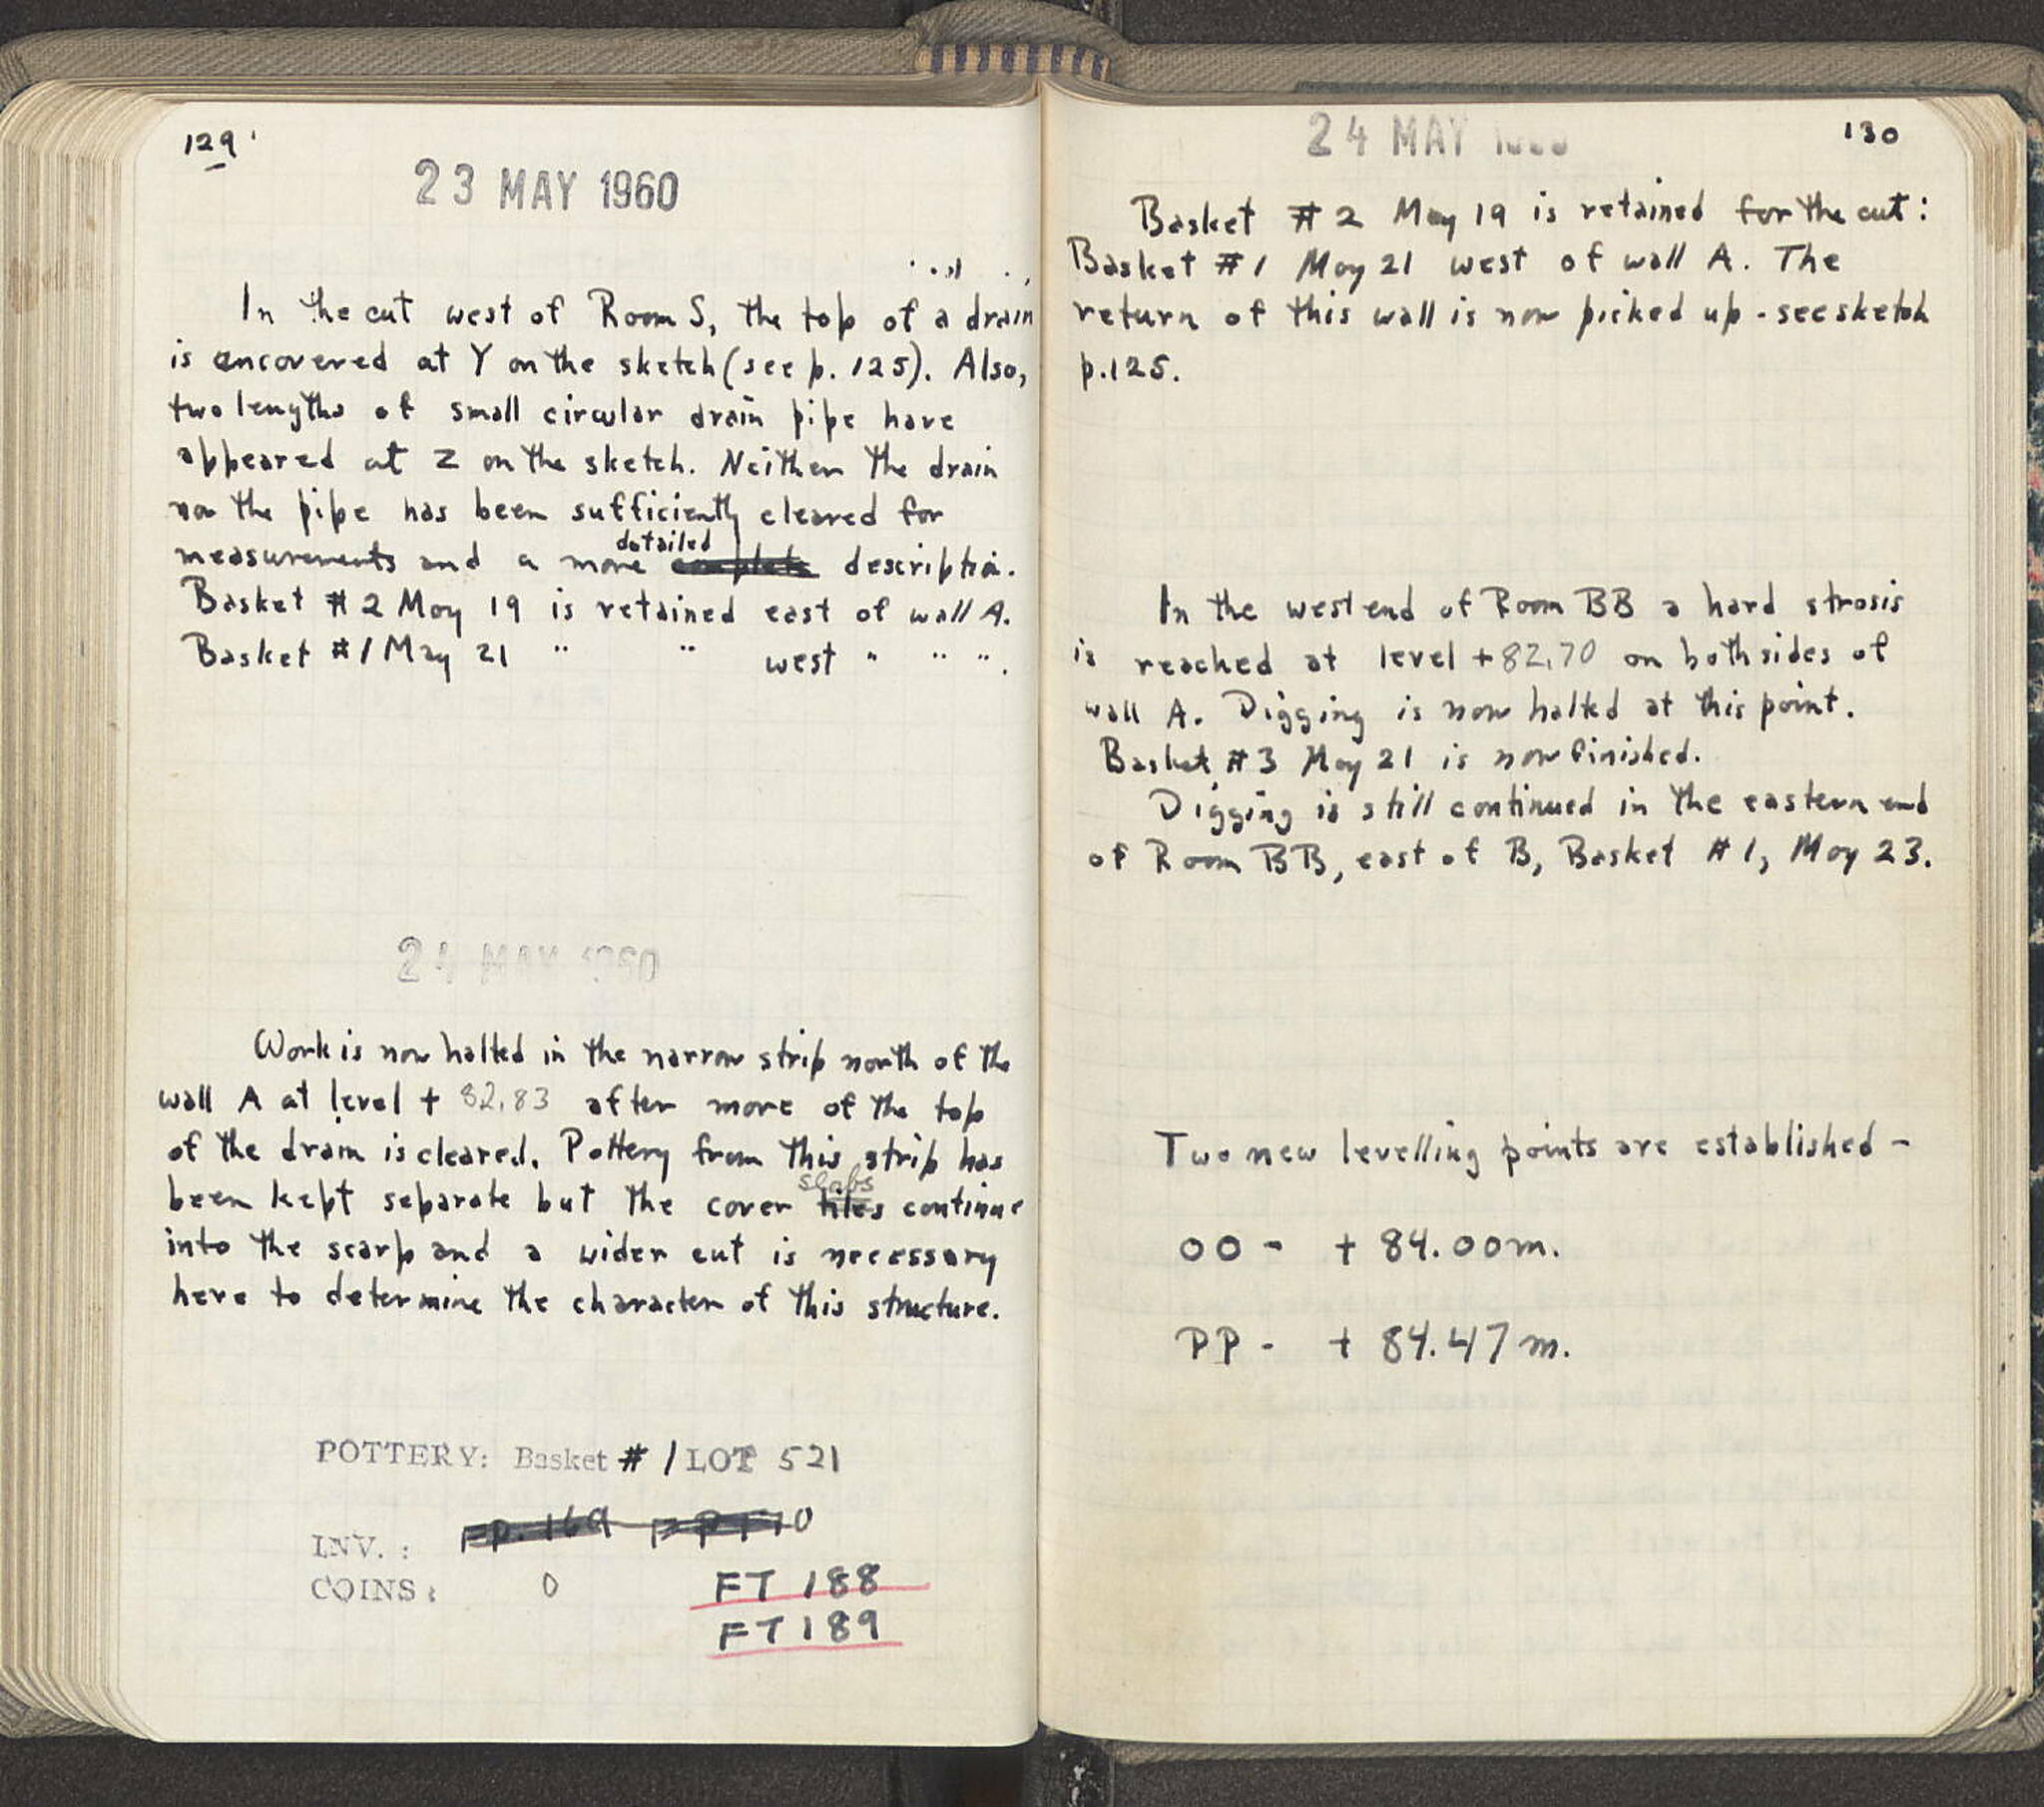 129
23 MAY 1960
In the cut west of Room S, the top of a drain
is uncovered at Y on the sketch (see p. 125). Also,
two lengths of small circular drain pipe have
appeared at Z on the sketch. Neither the drain
nor the pipe has been sufficiently cleared for
detailed
measurements and a more complete description.
Basket #2 May 19 is retained east of wall A.
Basket #1 May 21 " " west " " ".
24 MAY 1960
Work is now halted in the narrow strip north of the
wall A at level + 82.83 after more of the top
of the drain is cleared. Pottery from this strip has
slabs
been kept separate but the cover tiles continue
into the scarp and a wider cut is necessary
here to determine the character of this structure.
POTTERY: Basket # 1 LOT 521
INV. : FP. 169 FP 170
COINS: 0 FT 188
FT 189
24 MAY 1960
130
Basket #2 May 19 is retained for the cut:
Basket #1 May 21 west of wall A. The
return of this wall is now picked up - see sketch
p. 125.
In the west end of Room BB a hard strosis
is reached at level +82.70 on both sides of
wall A. Digging is now halted at this point.
Basket #3 May 21 is now finished.
Digging is still continued in the eastern end
of Room BB, east of B, Basket #1, May 23.
Two new levelling points are established -
OO - + 84.00m.
PP - + 84.47m.